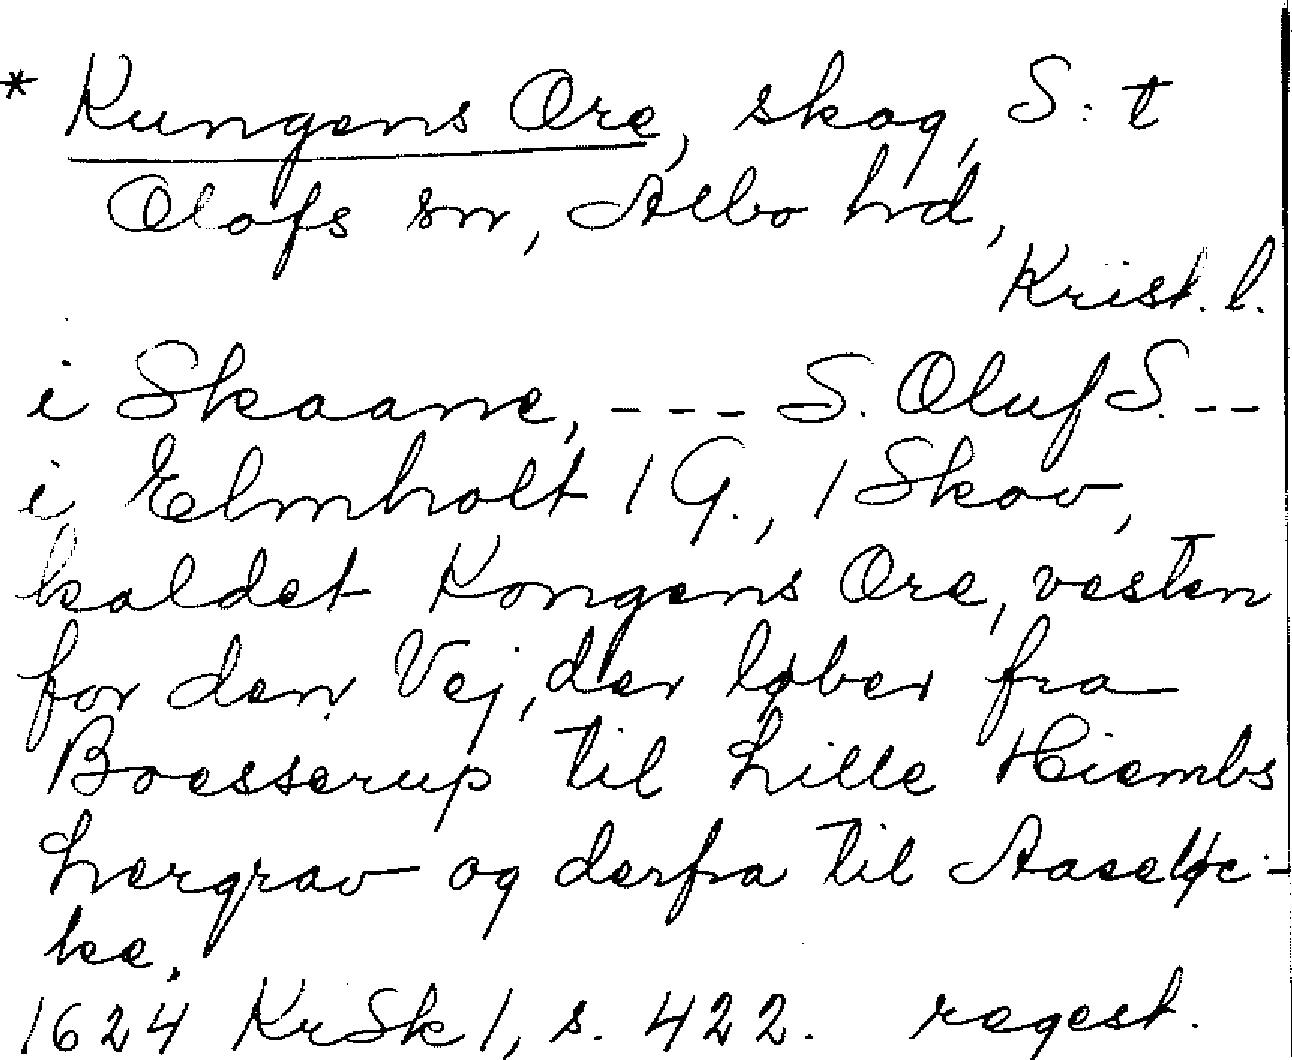 * Kungens Ore, skog, S:t
Olofs sn, Albo hd,
Krist. l.
i Skaane, - - - S. Oluf S. - -
i Elmholt 1 G., 1 Skov,
kaldet Kongens Ore, vesten
for den Vej, der løber fra
Boesserup til Lille Hiembs
Lergrav og derfra til Aaselyc-
ke.
1624 KrSk 1, s. 422. regest.